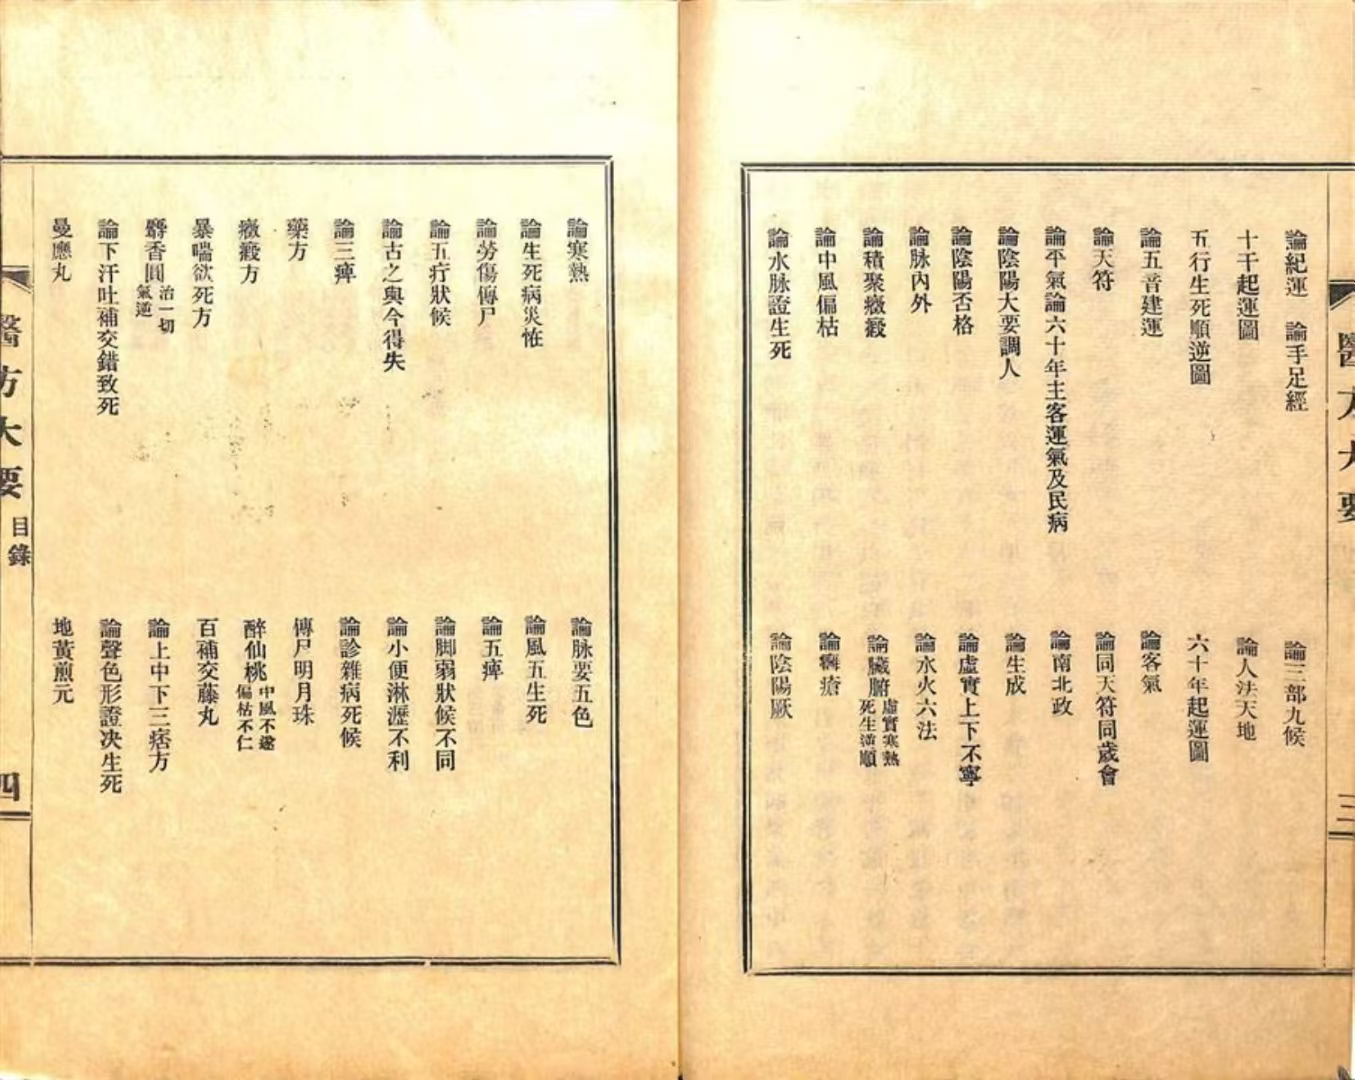 醫方大要
三
論紀運　論手足經
論三部九候
十干起運圖
論人法天地
五行生死順逆圖
六十年起運圖
論五音建運
論客氣
論天符
論同天符同歲會
論平氣論六十年主客運氣及民病
論南北政
論陰陽大要調人
論生成
論陰陽否格
論虛實上下不寧
論脉內外
論水火六法
論積聚癥瘕
論臟腑虛實寒熱死生逆順
論中風偏枯
論癰瘡
論水脉證生死
論陰陽厥
論寒熱
論脉要五色
論生死病災恠
論風五生死
論勞傷傳尸
論五痺
論五疔狀候
論脚弱狀候不同
論古之與今得失
論小便淋瀝不利
論三痺
論診雜病死候
藥方
傳尸明月珠
癥瘕方
醉仙桃中風不遂偏枯不仁
暴喘欲死方
百補交藤丸
麝香圓治一切氣逆
論上中下三痞方
論下汗吐補交錯致死
論聲色形證决生死
曼應丸
地黃煎元
醫方大要
目錄
四